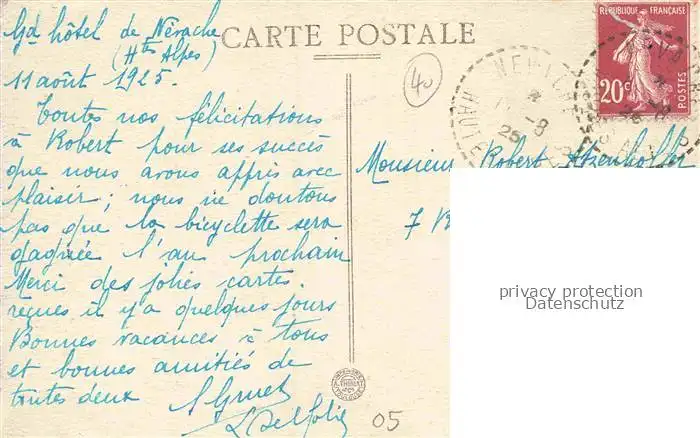 Gd hôtel de Névache
(Htes Alpes)
11 août 1925.
Toutes nos félicitations
à Robert pour ses succès
que nous avons appris avec
plaisir ; nous ne doutons
pas que la bicyclette sera
gagnée l'an prochain
Merci des jolies cartes
reçues il y a quelques jours
Bonnes vacances à tous
et bonnes amitiés de
toutes deux
CARTE POSTALE
40
REPUBLIQUE FRANÇAISE
20c
Monsieur Robert
7
privacy protection
Datenschutz
05